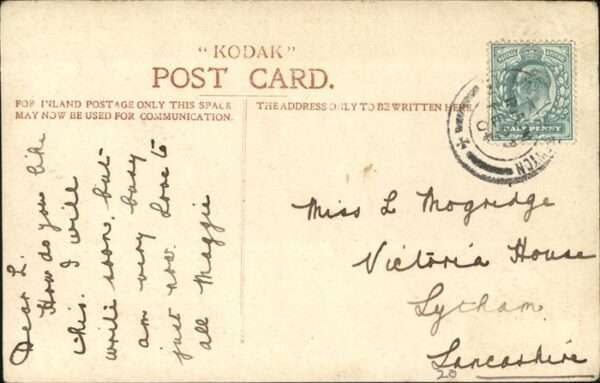 "KODAK"
POST CARD.
FOR INLAND POSTAGE ONLY THIS SPACE
MAY NOW BE USED FOR COMMUNICATION.
THE ADDRESS ONLY TO BE WRITTEN HERE.
HALF PENNY
Dear L.
How do you like
this. I will
write soon, but
am very busy
just now. Love to
all Maggie
Miss L Mogridge
Victoria House
Lytham
Lancashire
20